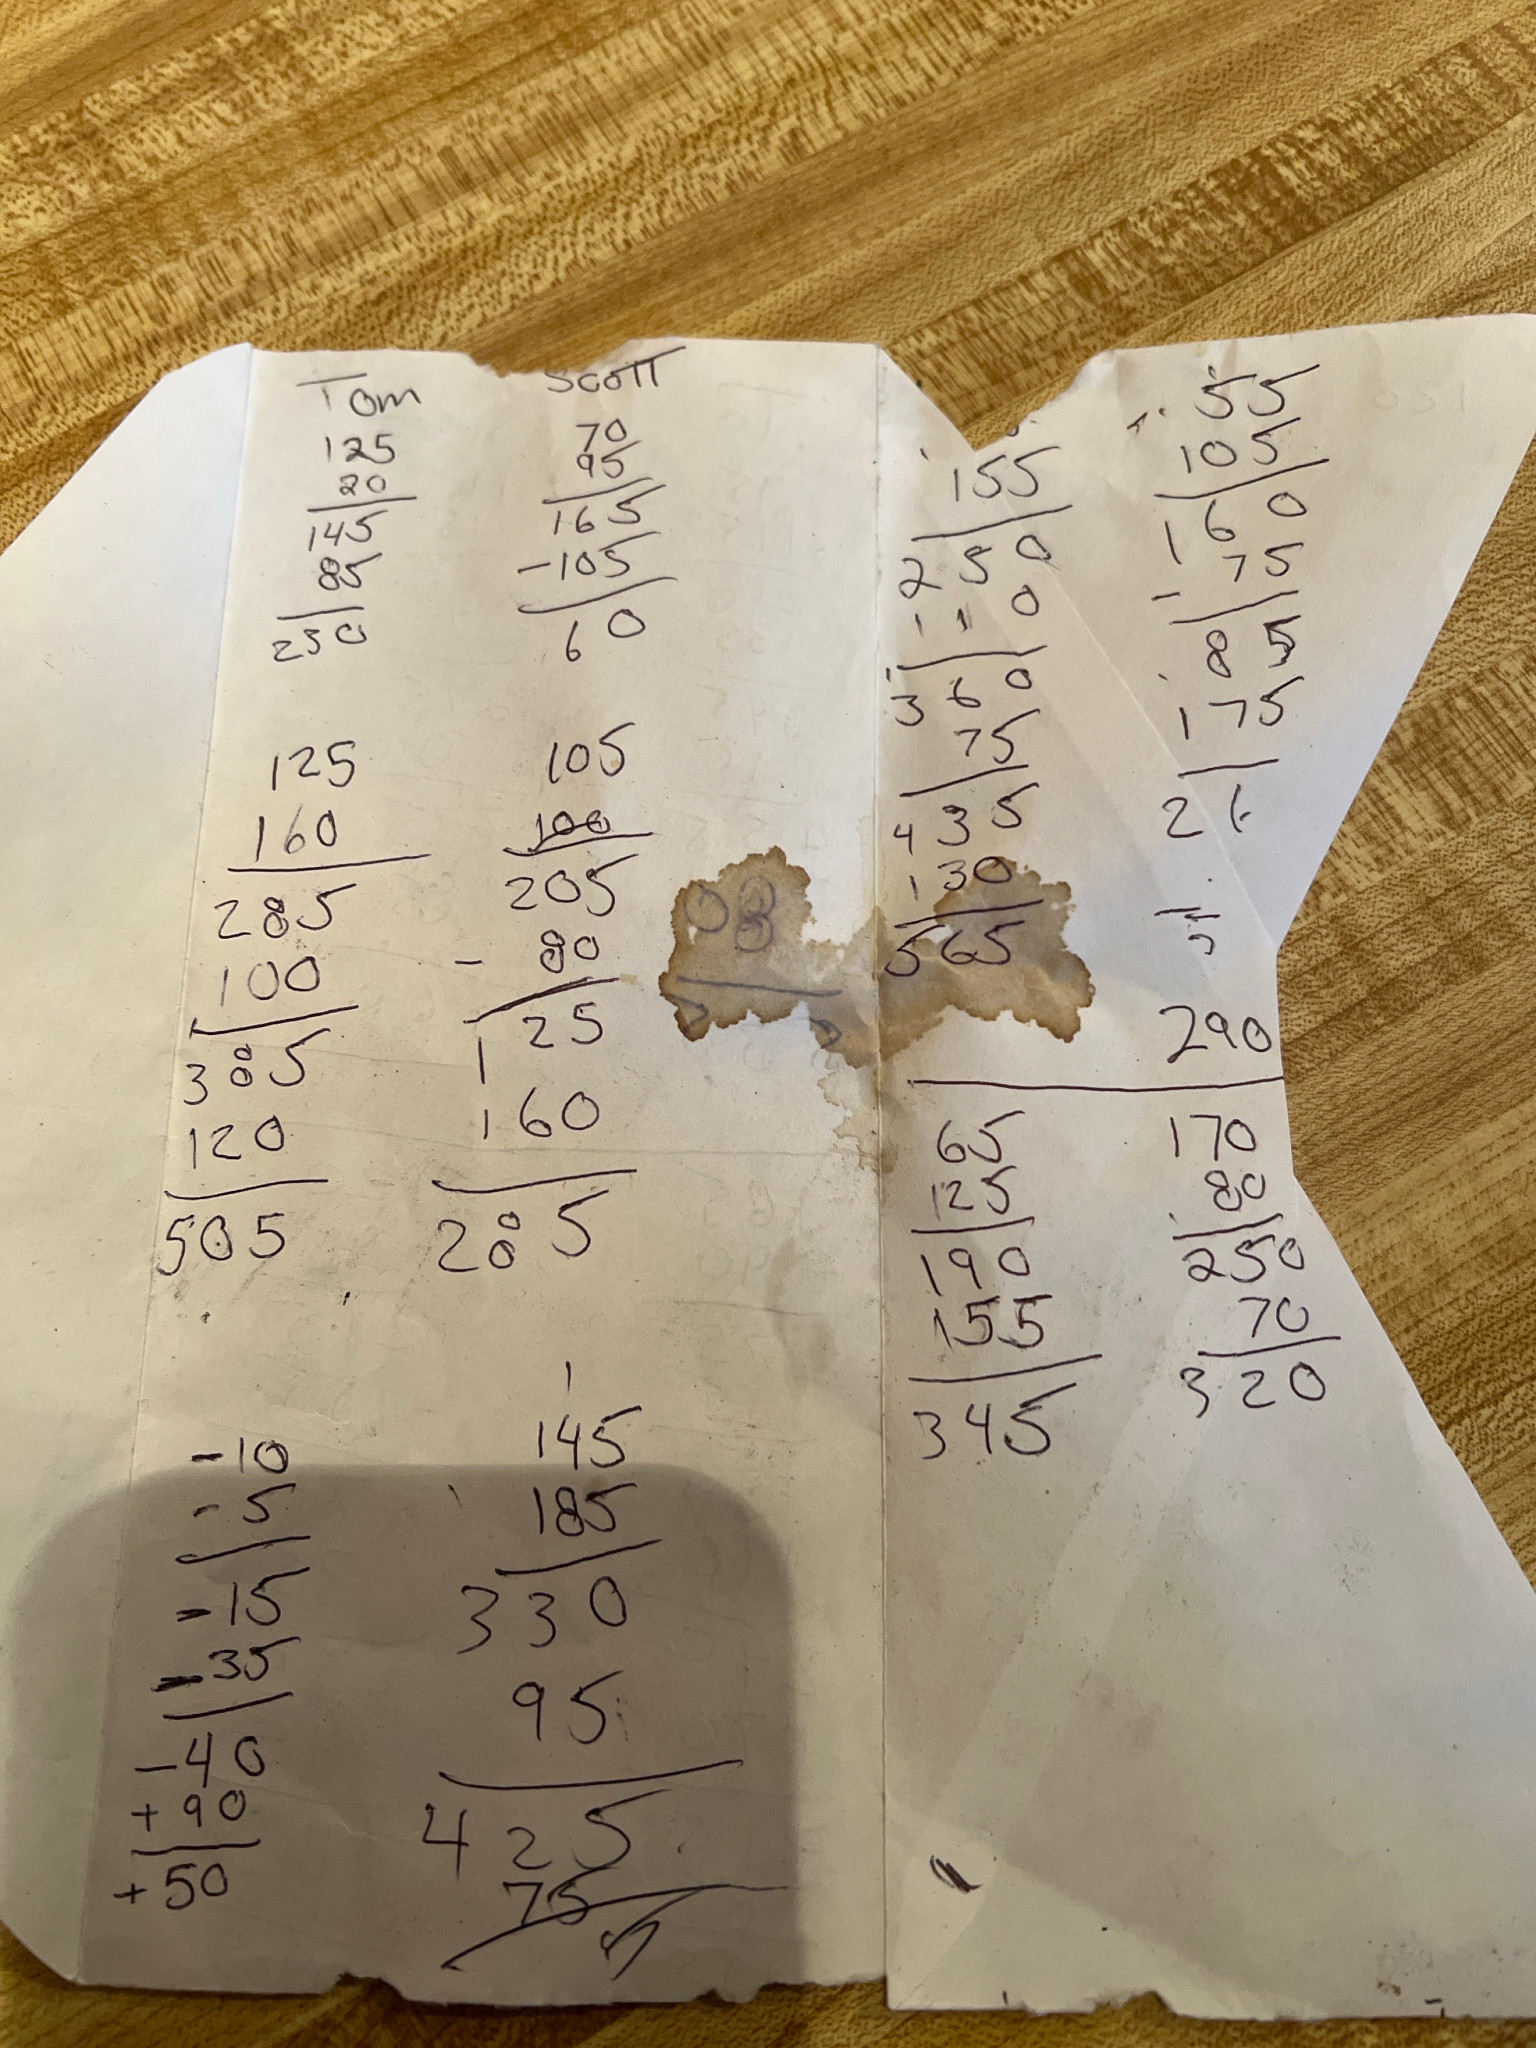 Tom
125
20
145
85
230
125
160
285
100
385
120
505
-10
-5
-15
-35
-40
+90
+50
Scott
70
95
165
-105
60
105
100
205
- 80
125
160
285
1
145
185
330
95
425
75
155
250
110
360
75
435
130
565
65
125
190
155
345
55
105
160
75
85
175
290
170
80
250
70
320